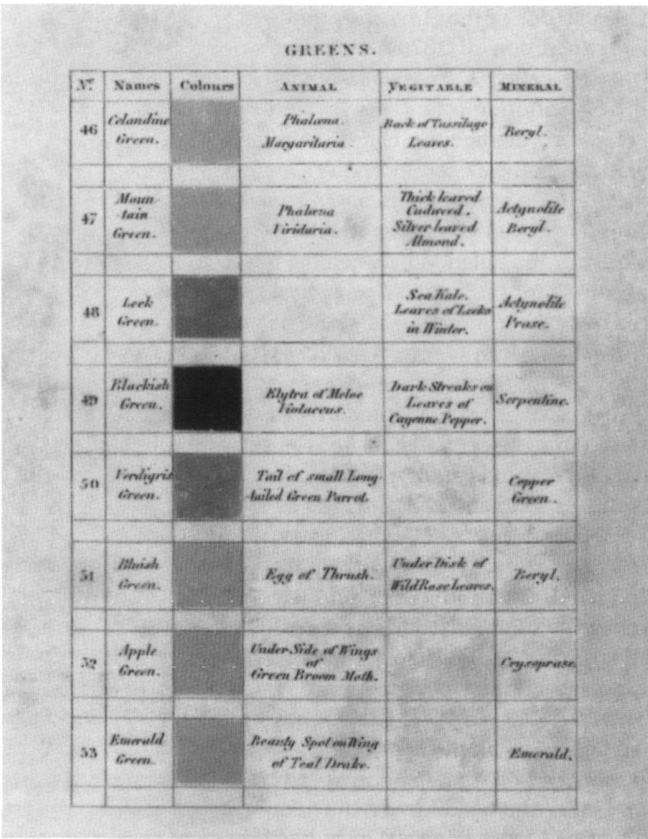 GREENS.
Nº. Names Colours ANIMAL VEGITABLE MINERAL
46 Celandine Green. Phalæna. Margaritaria. Back of Tussilago Leaves. Beryl.
47 Moun-tain Green. Phalæna Viridaria. Thick leaved Cudweed. Silver leaved Almond. Actynolite Beryl.
48 Leek Green. Sea Kale. Leaves of Leeks in Winter. Actynolite Prase.
49 Blackish Green. Elytra of Meloe Violaceus. Dark Streaks on Leaves of Cayenne Pepper. Serpentine.
50 Verdigris Green. Tail of small Long-tailed Green Parrot. Copper Green.
51 Bluish Green. Egg of Thrush. Under Disk of Wild Rose Leaves. Beryl.
52 Apple Green. Under Side of Wings of Green Broom Moth. Crysoprase.
53 Emerald Green. Beauty Spot on Wing of Teal Drake. Emerald.